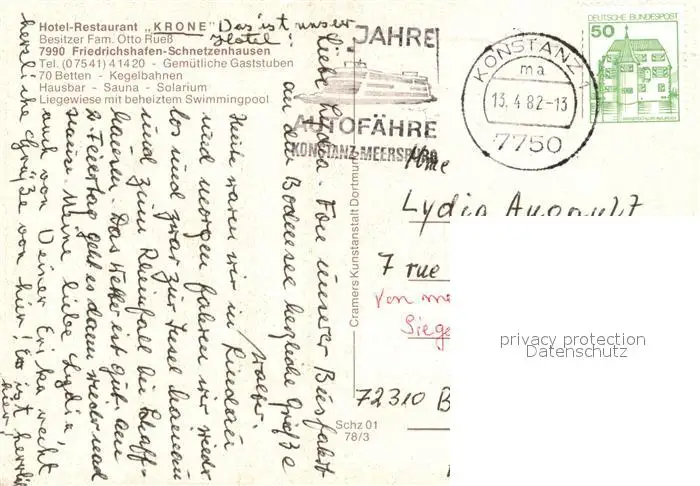 Hotel-Restaurant „KRONE"
Besitzer Fam. Otto Rueß
7990 Friedrichshafen-Schnetzenhausen
Tel. (07541) 41420 - Gemütliche Gaststuben
70 Betten - Kegelbahnen
Hausbar - Sauna - Solarium
Liegewiese mit beheiztem Swimmingpool
Das ist unser
Hotel!
JAHRE
AUTOFÄHRE
KONSTANZ-MEERSBURG
KONSTANZ 1
ma
13.4.82-13
7750
DEUTSCHE BUNDESPOST
50
Cramers Kunstanstalt Dortmund
Schz 01
78/3
Mme
Lydia
7 rue
Von
72310 B
privacy protection
Datenschutz
Liebe Lydia. Von unserer Busfahrt
an den Bodensee herzliche Grüße
Walter.
Heute waren wir in Lindau
und morgen fahren wir wieder
los und zwar zur Insel Mainau
und zum Rheinfall bei Schaff-
hausen. Das Wetter ist gut. Am
2. Feiertag geht es dann wieder nach
Hause. Meine liebe Lydia,
auch von Deiner Erika recht
herzliche Grüße von hier! Es ist herrlich
hier!